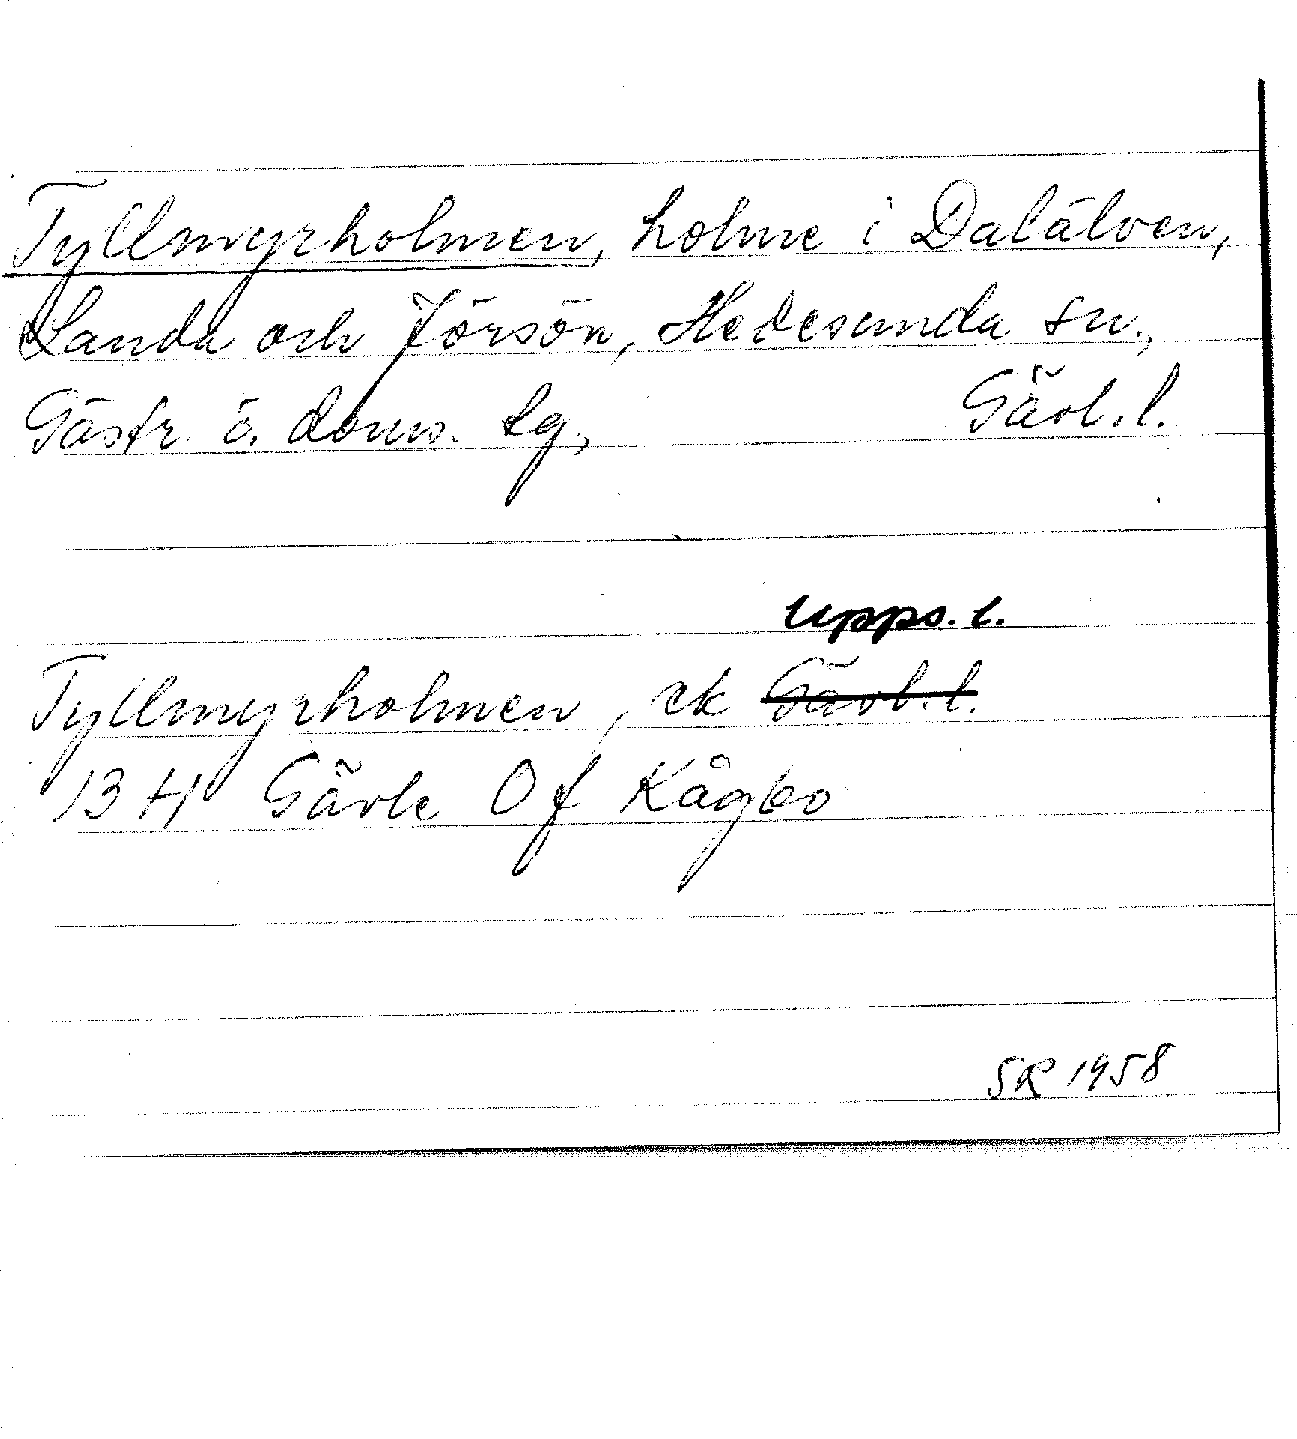 Tyllmyrholmen, holme i Dalälven,
Landa och Jörsön, Hedesunda sn.,
Gästr. ö. doms. tg., Gävl. l.
Upps. l.
Tyllmyrholmen, ek Gävl. l.
13 H Gävle 0 f Kågbo
SR 1958